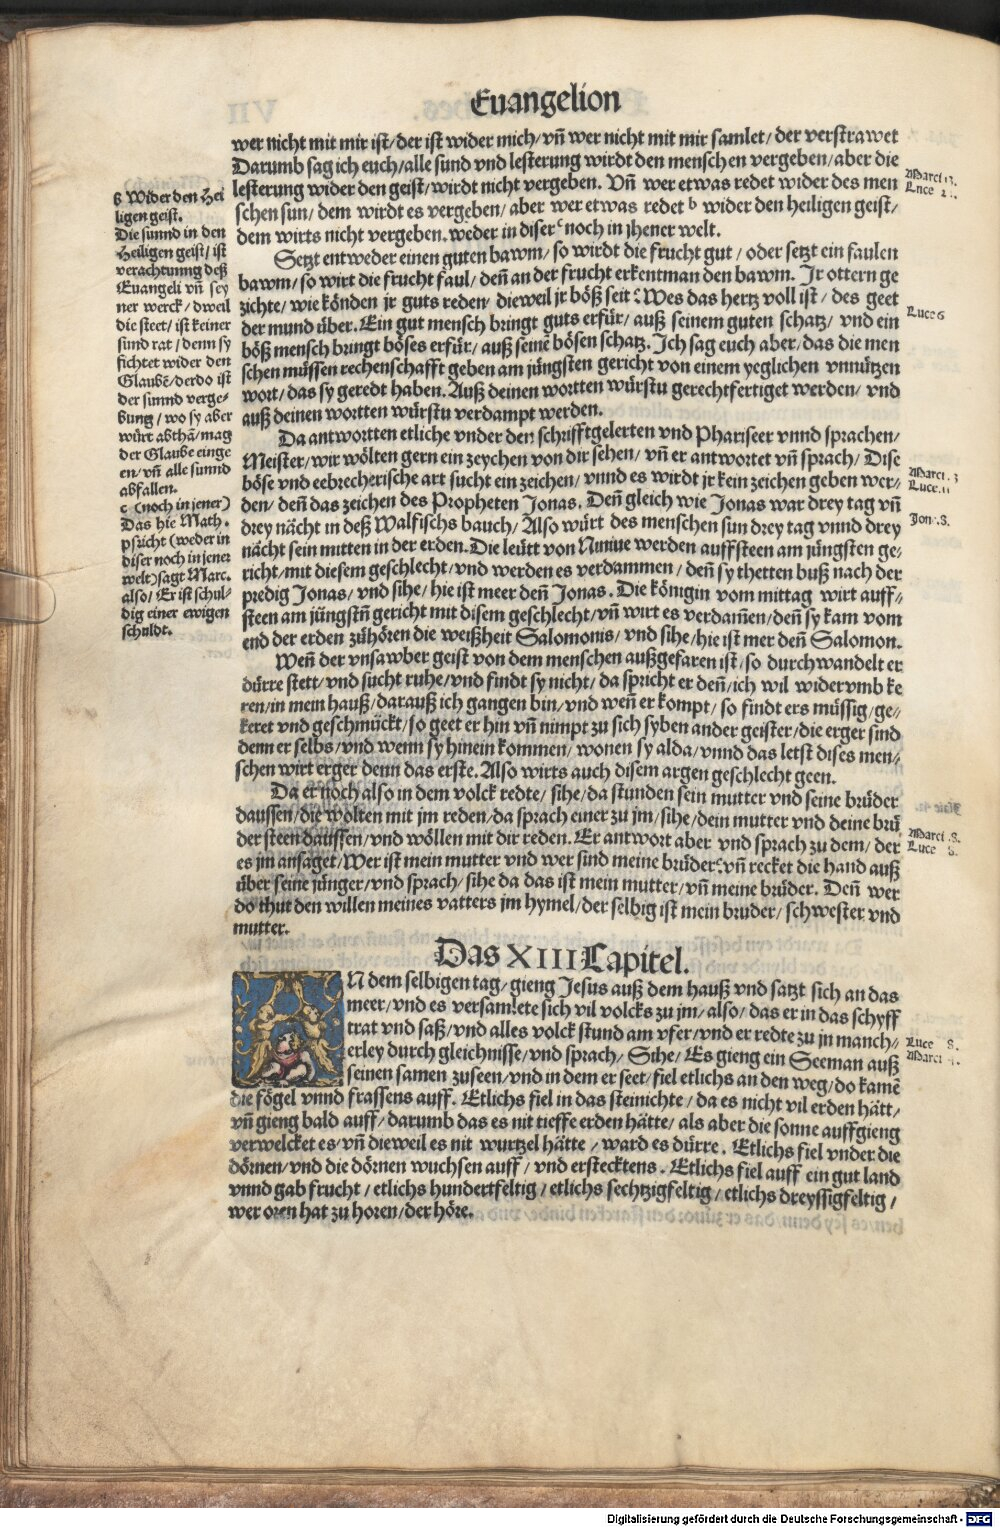 Euangelion
wer nicht mit mir ist/ der ist wider mich/ vñ wer nicht mit mir samlet/ der verstrawet
Darumb sag ich euch/ alle sund vnd lesterung wirdt den menschen vergeben/ aber die
lesterung wider den geist/ wirdt nicht vergeben. Vñ wer etwas redet wider des men
schen sun/ dem wirdt es vergeben/ aber wer etwas redet b wider den heiligen geist/
dem wirts nicht vergeben. weder in diser c noch in jhener welt.
Setzt entweder einen guten bawm/ so wirdt die frucht gut/ oder setzt ein faulen
bawm/ so wirt die frucht faul/ deñ an der frucht erkent man den bawm. Jr ottern ge
zichte/ wie könden jr guts reden/ dieweil jr böß seit? Wes das hertz voll ist/ des geet
der mund über. Ein gut mensch bringt guts erfür/ auß seinem guten schatz/ vnd ein
böß mensch bringt böses erfür/ auß seinē bösen schatz. Ich sag euch aber/ das die men
schen müssen rechenschafft geben am jüngsten gericht von einem yeglichen vnnützen
wort/ das sy geredt haben. Auß deinen wortten würstu gerechtfertiget werden/ vnd
auß deinen wortten würstu verdampt werden.
Da antwortten etliche vnder den schrifftgelerten vnd Phariseer vnnd sprachen/
Meister/ wir wölten gern ein zeychen von dir sehen/ vñ er antwortet vñ sprach/ Dise
böse vnd eebrecherische art sucht ein zeichen/ vnnd es wirdt jr kein zeichen geben wer⸗
den/ deñ das zeichen des Propheten Jonas. Deñ gleich wie Jonas war drey tag vñ
drey nächt in deß Walfischs bauch/ Also würt des menschen sun drey tag vnnd drey
nächt sein mitten in der erden. Die leütt von Niniue werden auffsteen am jüngsten ge⸗
richt/ mit diesem geschlecht/ vnd werden es verdammen/ deñ sy thetten buß nach der
predig Jonas/ vnd sihe/ hie ist meer deñ Jonas. Die königin vom mittag wirt auff⸗
steen am jüngstñ gericht mit disem geschlecht/ vñ wirt es verdam̄en/ deñ sy kam vom
end der erden zühören die weißheit Salomonis/ vnd sihe/ hie ist mer deñ Salomon.
Weñ der vnsawber geist von dem menschen außgefaren ist/ so durchwandelt er
dürre stett/ vnd sucht ruhe/ vnd findt sy nicht/ da spricht er deñ/ ich wil widervmb ke
ren/ in mein hauß/ darauß ich gangen bin/ vnd weñ er kompt/ so findt ers müssig/ ge⸗
keret vnd geschmückt/ so geet er hin vñ nimpt zu sich syben ander geister/ die erger sind
denn er selbs/ vnd wenn sy hinein kommen/ wonen sy alda/ vnnd das letst dises men⸗
schen wirt erger denn das erste. Also wirts auch disem argen geschlecht geen.
Da er noch also in dem volck redte/ sihe/ da stunden sein mutter vnd seine brüder
daussen/ die wolten mit jm reden/ da sprach einer zu jm/ sihe/ dein mutter vnd deine brü
der steen daussen/ vnd wöllen mit dir reden. Er antwort aber vnd sprach zu dem/ der
es jm ansaget/ Wer ist mein mutter vnd wer sind meine brüder? vñ recket die hand auß
über seine jünger/ vnd sprach/ sihe da das ist mein mutter/ vñ meine brüder. Deñ wer
do thut den willen meines vatters jm hymel/ der selbig ist mein bruder/ schwester vnd
mutter.
Das XIII Capitel.
AN dem selbigen tag/ gieng Jesus auß dem hauß vnd satzt sich an das
meer/ vnd es versamlete sich vil volcks zu jm/ also/ das er in das schyff
trat vnd saß/ vnd alles volck stund am vfer/ vnd er redte zu jn manch⸗
erley durch gleichnisse/ vnd sprach/ Sihe/ Es gieng ein Seeman auß
seinen samen zuseen/ vnd in dem er seet/ fiel etlichs an den weg/ do kamē
die fögel vnnd frassens auff. Etlichs fiel in das steinichte/ da es nicht vil erden hätt/
vñ gieng bald auff/ darumb das es nit tieffe erden hätte/ als aber die sonne auffgieng
verwelcket es/ vñ dieweil es nit wurtzel hätte/ ward es dürre. Etlichs fiel vnder die
dörnen/ vnd die dörnen wuchsen auff/ vnd erstecktens. Etlichs fiel auff ein gut land
vnnd gab frucht/ etlichs hundertfeltig/ etlichs sechtzigfeltig/ etlichs dreyssigfeltig/
wer oren hat zu horen/ der höre.
ß Wider den Hei
ligen geist.
Die sünnd in den
Heiligen geist/ ist
verachtunng deß
Euangeli vñ sey
ner werck/ dweil
die steet/ ist keiner
sund rat/ denn sy
fichtet wider den
Glaubē/ der do ist
der sunnd verge⸗
bung/ wo sy aber
würt abthā/ mag
der Glaube einge
en/ vñ alle sunnd
abfallen.
c (noch in jener)
Das hie Math.
pricht (weder in
diser noch in jener
welt) sagt Marc.
also/ Er ist schul⸗
dig einer ewigen
schuldt.
Marci
Luce
Luce 6
Marci
Luce. 11
Marci .8.
Luce 8.
Luce 8.
Marci 4.
Digitalisierung gefördert durch die Deutsche Forschungsgemeinschaft - DFG